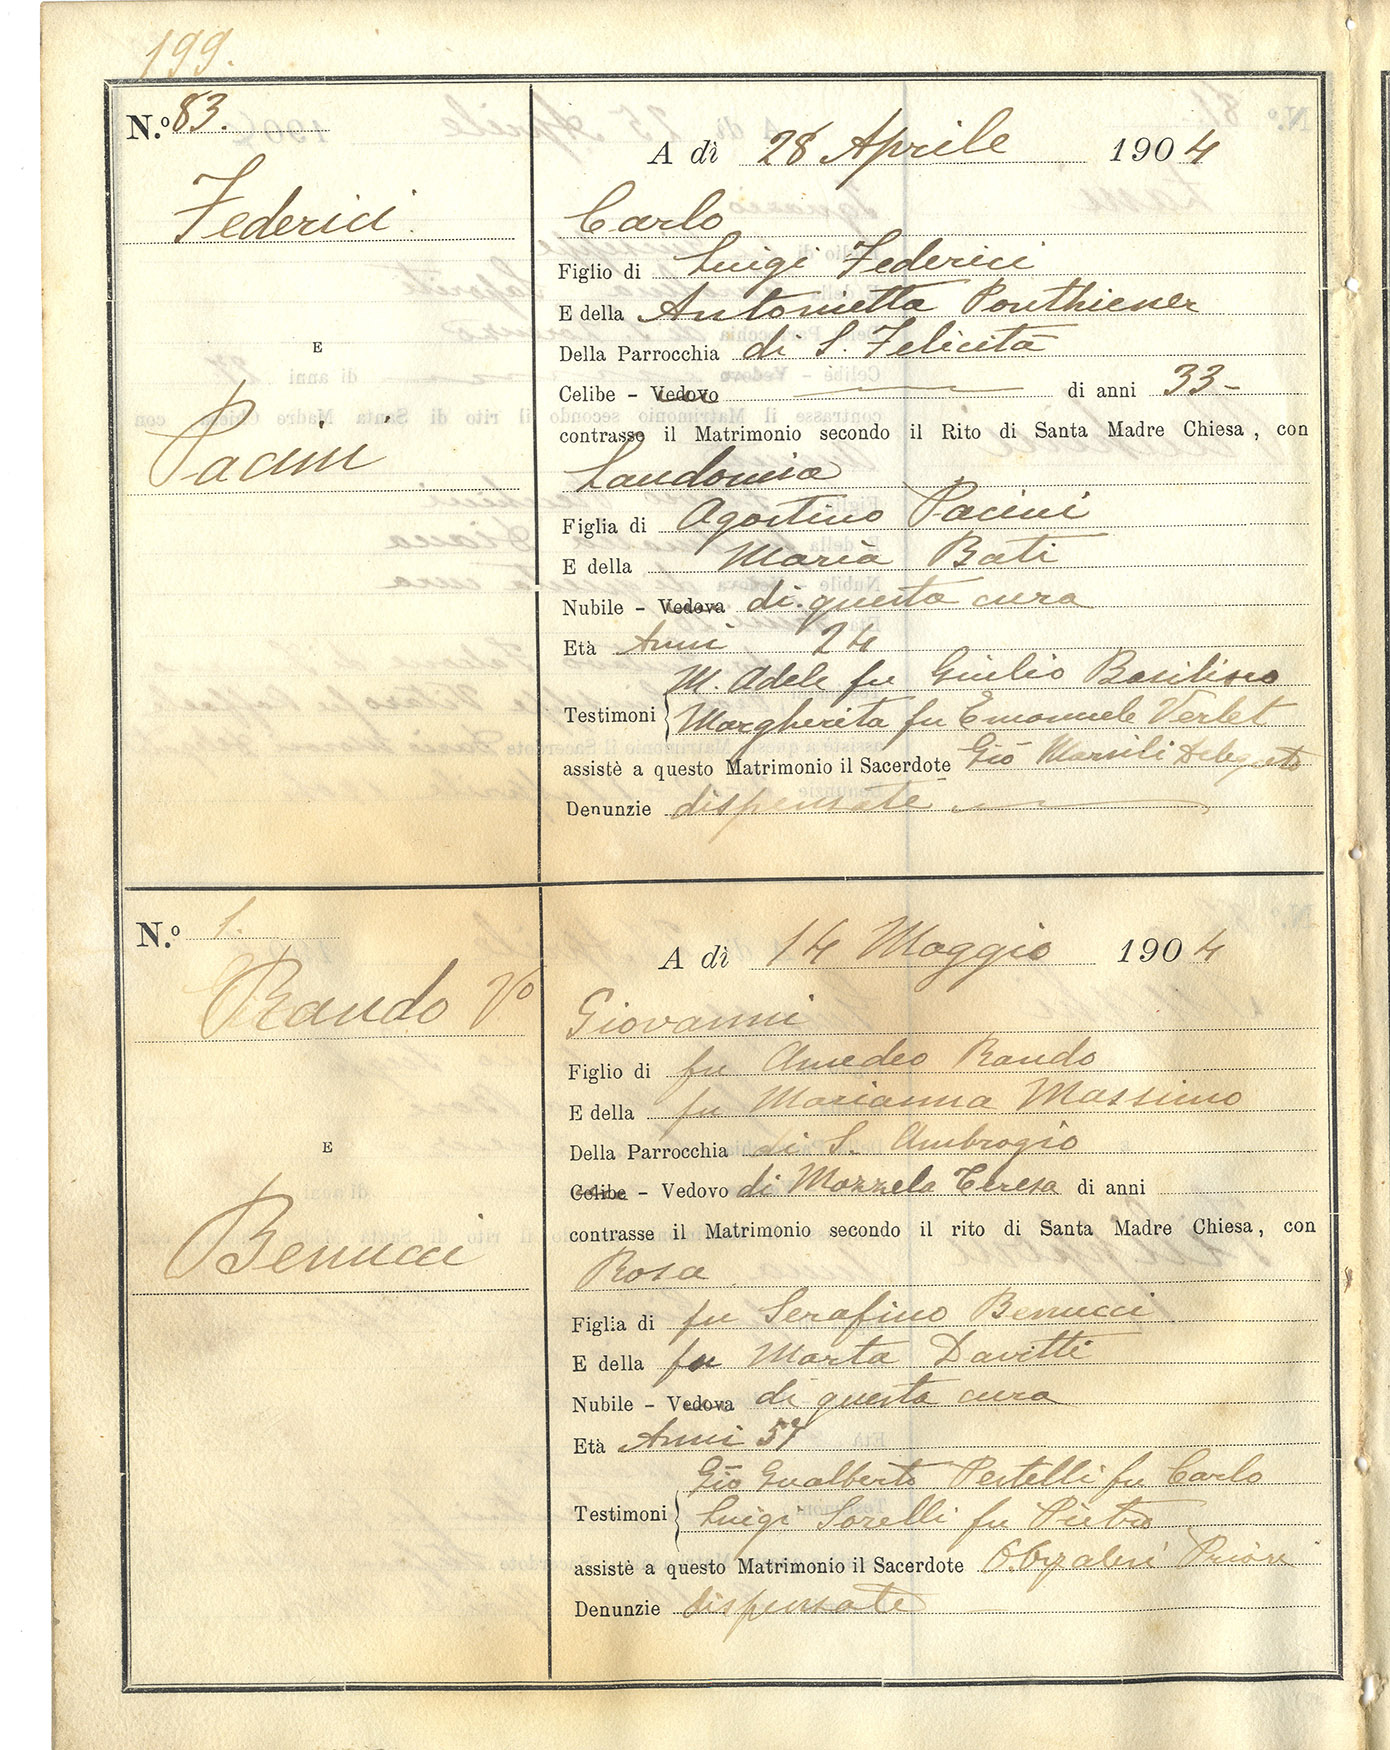 199.
N.º 83.
Federici
E
Pacini
A dì 28 Aprile 1904
Carlo
Figlio di Luigi Federici
E della Antonietta Ponthiener
Della Parrocchia di S. Felicita
Celibe – Vedovo di anni 33 –
contrasse il Matrimonio secondo il Rito di Santa Madre Chiesa, con
Laudomia
Figlia di Agostino Pacini
E della Maria Bati
Nubile – Vedova di questa cura
Età Anni 24
M. Adele fu Giulio
Testimoni Margherita fu Emanuele Verlet
assistè a questo Matrimonio il Sacerdote Gio Marsili Delegato
Denunzie dispensate
N.º 1.
Rando Vo
E
Benucci
A dì 14 Maggio 1904
Giovanni
Figlio di fu Amedeo Rando
E della fu Marianna Massimo
Della Parrocchia di S. Ambrogio
Celibe – Vedovo di Mozzela Teresa di anni
contrasse il Matrimonio secondo il rito di Santa Madre Chiesa, con
Rosa
Figlia di fu Serafino Benucci
E della fu Marta Davitti
Nubile – Vedova di questa cura
Età Anni 57
Gio Gualberto Pestelli fu Carlo
Testimoni Luigi Sorelli fu Pietro
assistè a questo Matrimonio il Sacerdote Priore
Denunzie dispensate